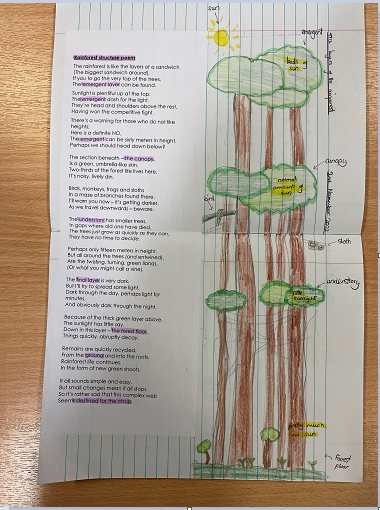 Rainforest structure poem
The rainforest is like the layers of a sandwich
(The biggest sandwich around).
If you to go the very top of the trees,
The emergent layer can be found.
Sunlight is plentiful up at the top.
The emergent dash for the light.
They're head and shoulders above the rest,
Having won the competitive light.
There's a warning for those who do not like
heights:
Here is a definite NO.
The emergent can be sixty meters in height.
Perhaps we should head down below!!
The section beneath – the canopy,
Is a green, umbrella-like skin.
Two-thirds of the forest life lives here,
It's noisy, lively din.
Birds, monkeys, frogs and sloths
In a maze of branches found there.
I'll warn you now – it's getting darker.
As we travel downwards – beware.
The understory has smaller trees,
In gaps where old one have died.
The trees just grow as quickly as they can,
They have no time to decide.
Perhaps only fifteen meters in height,
But all around the trees (and entwined),
Are the twisting, turning, green lianas,
(Or what you might call a vine).
The final layer is very dark
But I'll try to spread some light.
Dark through the day, perhaps light for
minutes.
And obviously dark through the night.
Because of the thick green layer above,
The sunlight has little say.
Down in this layer – the forest floor,
Things quickly, abruptly decay.
Remains are quickly recycled,
From the ground and into the roots.
Rainforest life continues,
In the form of new green shoots.
It all sounds simple and easy,
But small changes mean it all stops.
So it's rather sad that this complex web
Seems destined for the chop.
sun
emergent
lots of
sun
canopy
normal
amount of
sun
bird
sloth
understory
little
sunlight
pretty much
no sun
forest
floor